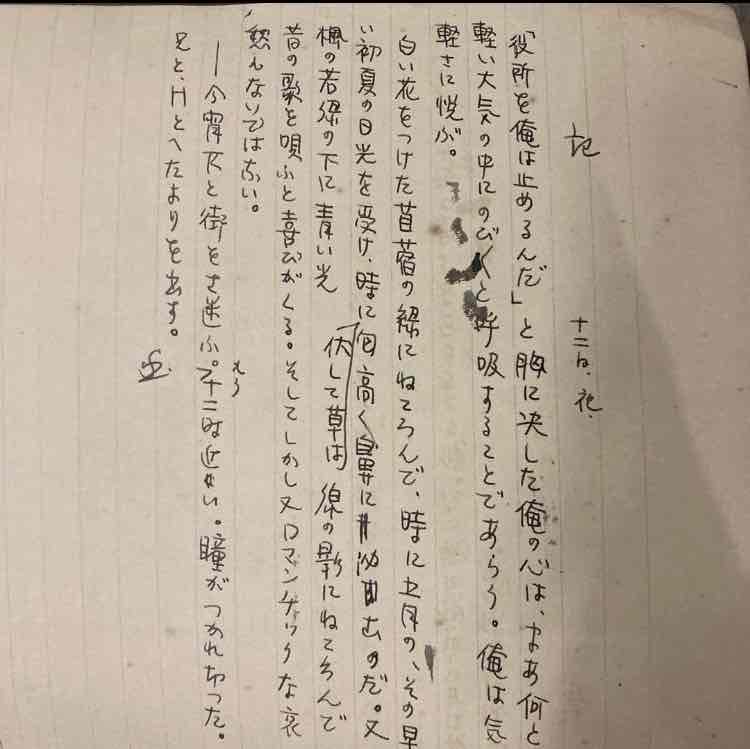 記
十二日、夜、
「役所を俺は止めるんだ」と胸に決した俺の心は、まあ何と
軽い大気の中にのび〱と呼吸することであらう。俺は気
軽さに悦ぶ。
白い花をつけた苜蓿の緑にねころんで、時に五月の、その早
い初夏の日光を受け、時に匂高く鼻に
伏して草は
むのだ。又
楓の若緑の下に青い光 緑の影にねころんで
昔の歌を唄ふと喜びがくる。そしてしかし又ロマンチックな哀
愁もないではない。
―今宵Kと街をさ迷ふ。もう十二時近い。瞳がつかれ切つた。
兄と、Hとへたよりを出す。